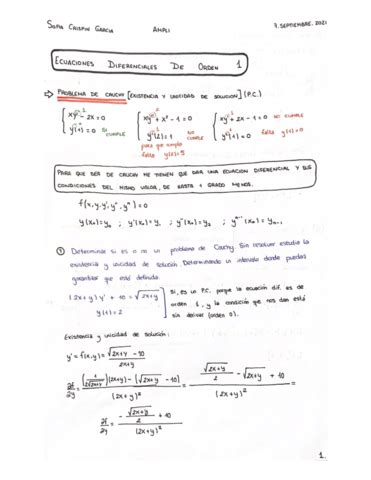 SOFIA CRISPIN GARCIA AMPLI 7. SEPTIEMBRE. 2021
ECUACIONES DIFERENCIALES DE ORDEN 1
⇒ PROBLEMA DE CAUCHY [EXISTENCIA Y UNICIDAD DE SOLUCION] (P.C.)
{ xy' - 2x = 0
y(1) = 0 SI CUMPLE
{ xy'' + x² - 1 = 0
y''(2) = 1 NO CUMPLE
para que cumpla
falta
{ xy'' + 2x - 1 = 0 NO CUMPLE
y'(1) = 0 falta y(1) = 0
PARA QUE SEA DE CAUCHY ME TIENEN QUE DAR UNA ECUACION DIFERENCIAL Y SUS
CONDICIONES DEL MISMO VALOR, DE HASTA 1 GRADO MENOS.
f(x, y, y', y'', yⁿ) = 0
y(x₀) = y₀ ; y'(x₀) = y₁ ; y''(x₀) = y₂ ; yⁿ⁻¹(x₀) = yₙ₋₁
① Determinar si es o no un problema de Cauchy. Sin resolver estudia la
existencia y unicidad de solución. Determinando un intervalo donde puedas
garantizar que está definida.
(2x+y) y' + 10 = √2x+y
y(1) = 2
Si, es un P.C. porque la ecuación dif. es de
orden 1, y la condición que nos dan está
sin derivar (orden 0).
Existencia y unicidad de solución:
y' = f(x,y) = (√2x+y - 10) / (2x+y)
∂f/∂y = ((1/(2√2x+y))(2x+y) - (√2x+y - 10)) / (2x+y)² = (√2x+y/2 - √2x+y + 10) / (2x+y)² =
∂f/∂y = (-√2x+y/2 + 10) / (2x+y)²
1.